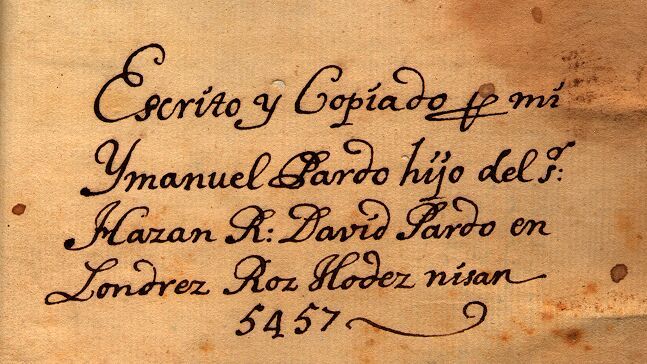 Escrito y Copiado p mi
Ymanuel Pardo hijo del sr:
Hazan R: David Pardo en
Londrez Roz Hodez nisan
5457